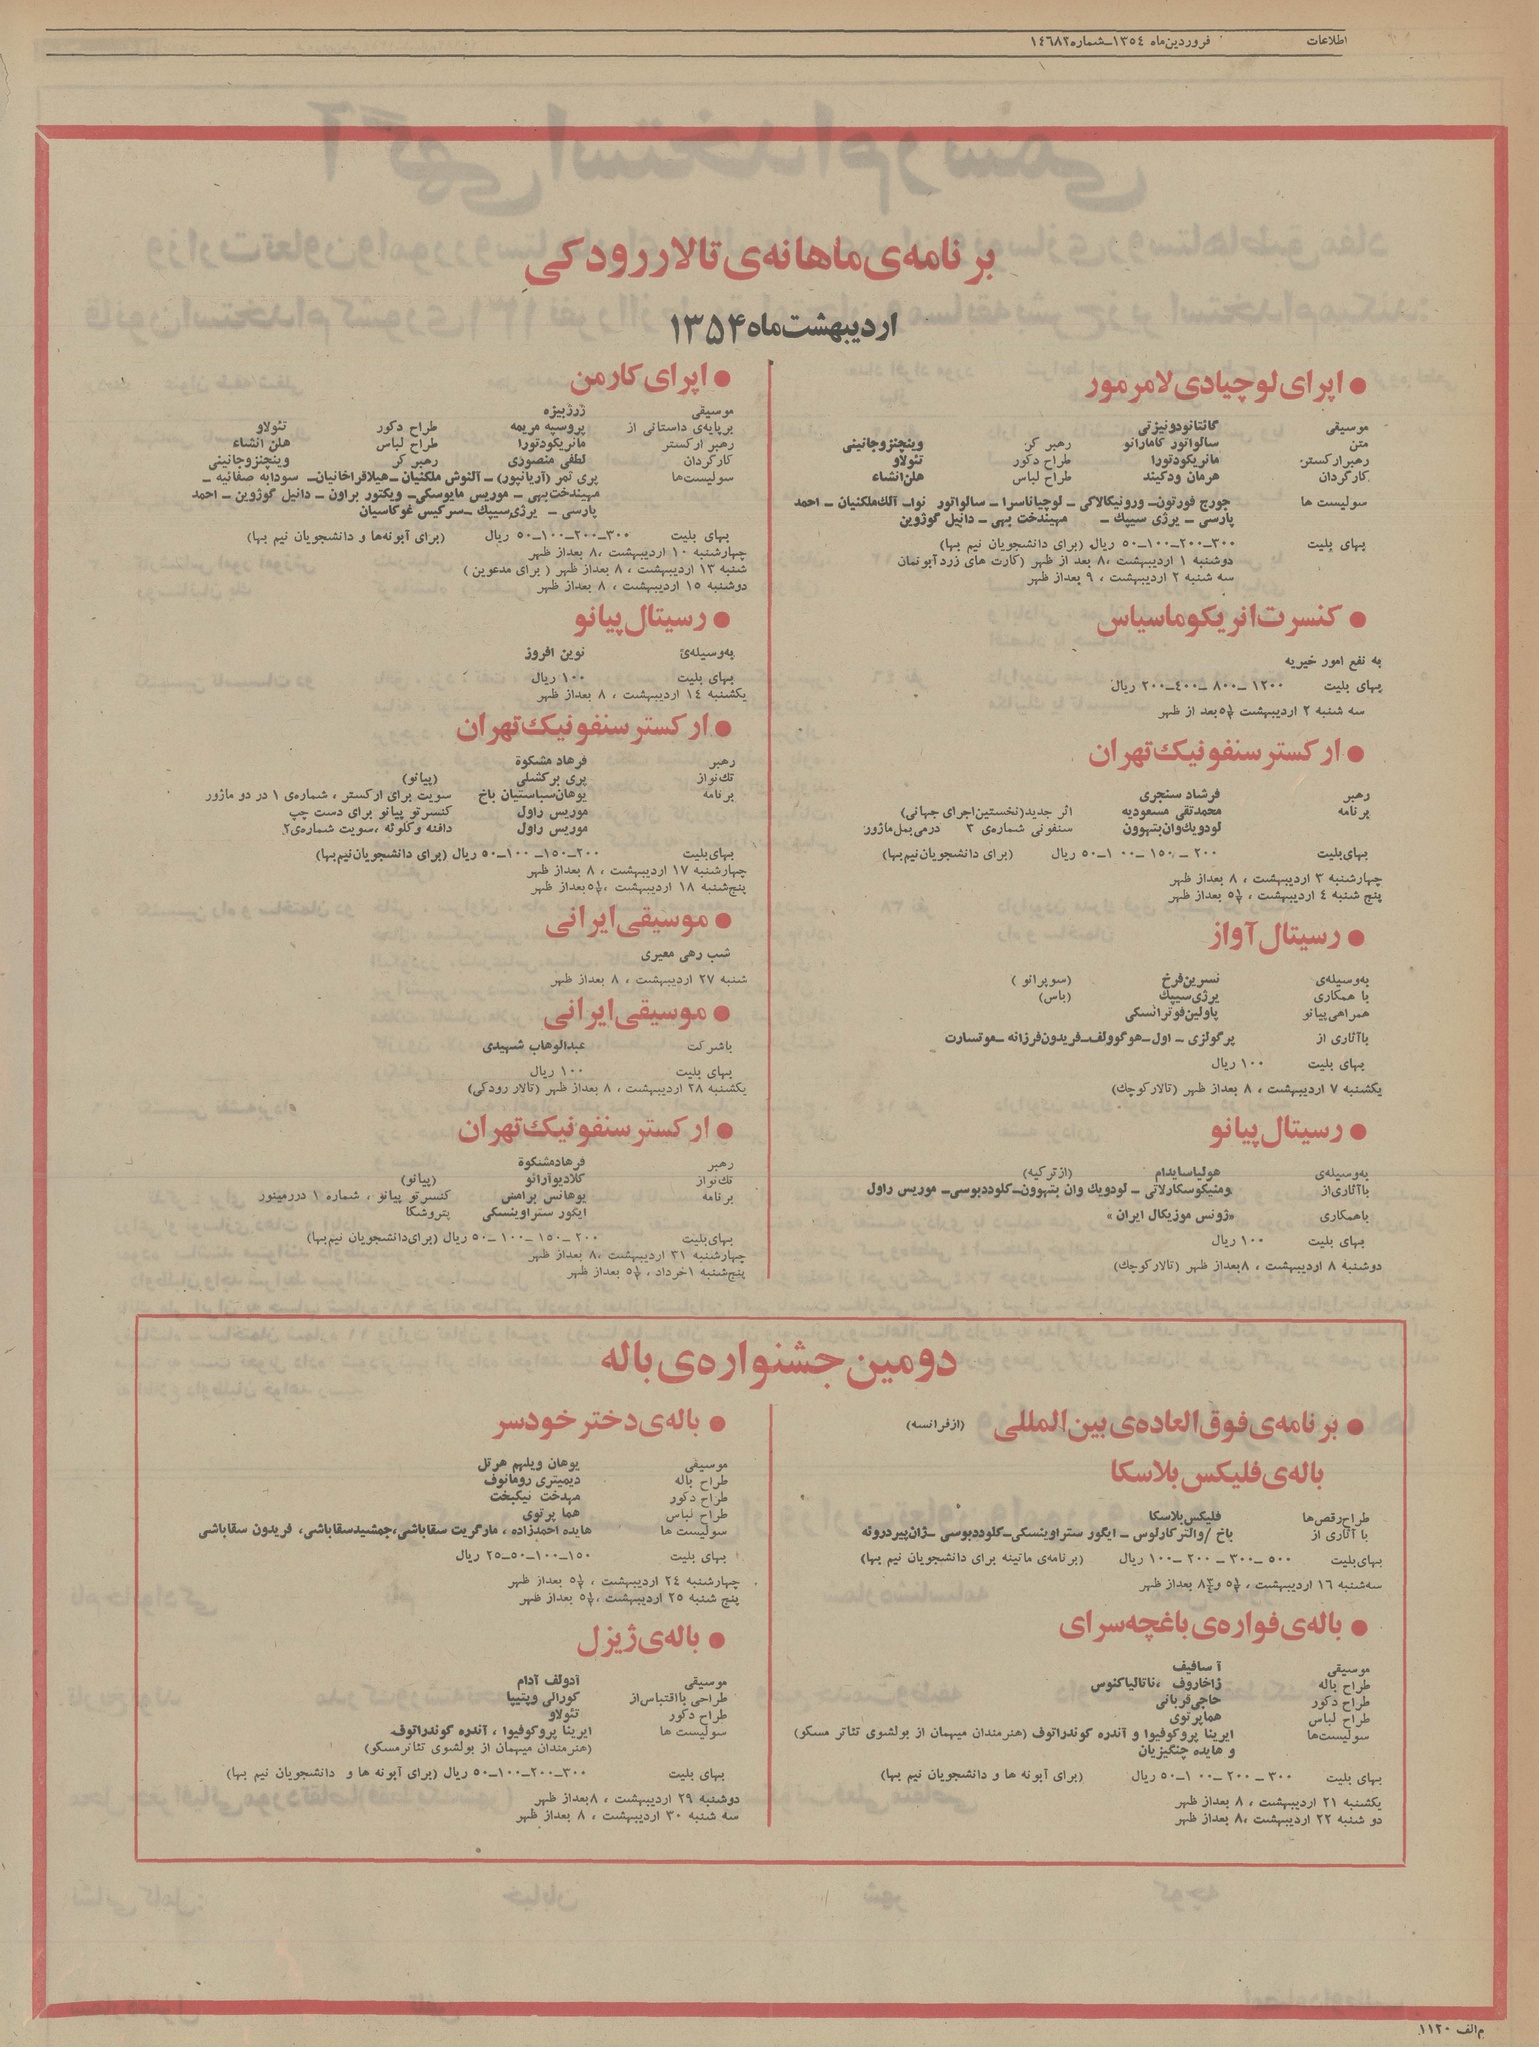 اطلاعات
فروردین‌ماه ۱۳۵۴ـ شماره ۱۴۶۸۲
برنامه‌ی ماهانه‌ی تالار رودکی
اردیبهشت ماه ۱۳۵۴
● اپرای لوچیادی لامرمور
موسیقی گائتانو دونیزتی
متن سالواتور کامارانو رهبر کر وینچنزو جانینی
رهبر ارکستر مانریکو دتورا طراح دکور تئولاو
کارگردان هرمان ودکیند طراح لباس هلن انشاء
سولیست ها جورج فورتون ـ ورونیکالاکی ـ لوچیاناسرا ـ سالواتور نوا ـ آلك ملکنیان ـ احمد
پارسی ـ یرژی سیپك ـ مهیندخت بهی ـ دانیل گوژوین
بهای بلیت ۳۰۰ـ۲۰۰ـ۱۰۰ـ۵۰ ریال (برای دانشجویان نیم بها)
دوشنبه ۱ اردیبهشت ، ۸ بعد از ظهر (کارت های زرد آبونمان
سه شنبه ۲ اردیبهشت ، ۹ بعداز ظهر
● کنسرت انریکو ماسیاس
به نفع امور خیریه
بهای بلیت ۱۲۰۰ ـ ۸۰۰ ـ۴۰۰ـ ۲۰۰ ریال
سه شنبه ۲ اردیبهشت ۵½ بعد از ظهر
● ارکستر سنفونیك تهران
رهبر فرشاد سنجری
برنامه محمدتقی مسعودیه اثر جدید (نخستین اجرای جهانی)
لودویك وان بتهوون سنفونی شماره‌ی ۳ درمی‌بمل ماژور
بهای بلیت ۲۰۰ ـ ۱۵۰ ـ ۱۰۰ـ۵۰ ریال (برای دانشجویان نیم بها)
چهارشنبه ۳ اردیبهشت ، ۸ بعداز ظهر
پنج شنبه ۴ اردیبهشت ، ۵½ بعداز ظهر
● رسیتال آواز
به‌وسیله‌ی نسرین فرخ (سوپرانو)
با همکاری یرژی سیپك (باس)
همراهی پیانو پاولین فوترانسکی
باآثاری از پرگولزی ـ اول ـ هوگوولف ـ فریدون فرزانه ـ موتسارت
بهای بلیت ۱۰۰ ریال
یکشنبه ۷ اردیبهشت ، ۸ بعداز ظهر (تالار کوچك)
● رسیتال پیانو
به‌وسیله‌ی هولیا سایدام (از ترکیه)
باآثاری‌از ومنیکو سکارلاتی ـ لودویك وان بتهوون ـ کلوددبوسی ـ موریس راول
باهمکاری «ژونس موزیکال ایران»
بهای بلیت ۱۰۰ ریال
دوشنبه ۸ اردیبهشت ، ۸ بعداز ظهر (تالار کوچك)
● اپرای کارمن
موسیقی ژرژبیزه
برپایه‌ی داستانی از پروسپه مریمه طراح دکور تئولاو
رهبر ارکستر مانریکو دتورا طراح لباس هلن انشاء
کارگردان لطفی منصوری رهبر کر وینچنزو جانینی
سولیست‌ها پری ثمر (آریانپور) ـ آلنوش ملکنیان ـ هیلاقراخانیان ـ سودابه صفائیه ـ
مهیندخت بهی ـ موریس مایوسکی ـ ویکتور براون ـ دانیل گوژوین ـ احمد
پارسی ـ یرژی سیپك ـ سرکیس غوکاسیان
بهای بلیت ۳۰۰ـ۲۰۰ـ۱۰۰ـ۵۰ ریال (برای آبونه‌ها و دانشجویان نیم بها)
چهارشنبه ۱۰ اردیبهشت ، ۸ بعداز ظهر
شنبه ۱۳ اردیبهشت ، ۸ بعداز ظهر (برای مدعوین)
دوشنبه ۱۵ اردیبهشت ، ۸ بعداز ظهر
● رسیتال پیانو
به‌وسیله‌ئ نوین افروز
بهای بلیت ۱۰۰ ریال
یکشنبه ۱۴ اردیبهشت ، ۸ بعداز ظهر
● ارکستر سنفونیك تهران
رهبر فرهاد مشکوة
تك‌نواز پری برکشلی (پیانو)
برنامه یوهان سباستیان باخ سویت برای ارکستر ، شماره‌ی ۱ در دو ماژور
موریس راول کنسرتو پیانو برای دست چپ
موریس راول دافنه و کلوئه ، سویت شماره‌ی۲
بهای بلیت ۲۰۰ـ۱۵۰ـ ۱۰۰ـ۵۰ ریال (برای دانشجویان نیم بها)
چهارشنبه ۱۷ اردیبهشت ، ۸ بعداز ظهر
پنج‌شنبه ۱۸ اردیبهشت ، ۵½ بعداز ظهر
● موسیقی ایرانی
شب رهی معیری
شنبه ۲۷ اردیبهشت ، ۸ بعداز ظهر
● موسیقی ایرانی
باشرکت عبدالوهاب شهیدی
بهای بلیت ۱۰۰ ریال
یکشنبه ۲۸ اردیبهشت ، ۸ بعداز ظهر (تالار رودکی)
● ارکستر سنفونیك تهران
رهبر فرهاد مشکوة
تك‌نواز کلادیو آرائو (پیانو)
برنامه یوهانس برامس کنسرتو پیانو ، شماره ۱ در رمینور
ایگور ستراوینسکی پتروشکا
بهای بلیت ۲۰۰ ـ ۱۵۰ ـ۱۰۰ ـ۵۰ ریال (برای دانشجویان نیم بها)
چهارشنبه ۳۱ اردیبهشت ،۸ بعداز ظهر
پنج‌شنبه ۱ خرداد ، ۵½ بعداز ظهر
دومین جشنواره‌ی باله
● برنامه‌ی فوق‌العاده‌ی بین‌المللی (از فرانسه)
باله‌ی فلیکس بلاسکا
طراح رقص‌ها فلیکس بلاسکا
با آثاری از باخ / والتر کارلوس ـ ایگور ستراوینسکی ـ کلوددبوسی ـ ژان پیر درونه
بهای بلیت ۵۰۰ ـ۳۰۰ ـ ۲۰۰ ـ۱۰۰ ریال (برنامه‌ی ماتینه برای دانشجویان نیم بها)
سه‌شنبه ۱۶ اردیبهشت ، ۵½ و ۸¾ بعداز ظهر
● باله‌ی فواره‌ی باغچه سرای
موسیقی آسافیف
طراح باله زاخاروف ، ناتالیا کنوس
طراح دکور حاجی قربانی
طراح لباس هما پرتوی
سولیست‌ها ایرینا پروکوفیوا و آندره کوندراتوف (هنرمندان میهمان از بولشوی تئاتر مسکو)
و هایده چنگیزیان
بهای بلیت ۳۰۰ ـ ۲۰۰ ـ ۱۰۰ـ۵۰ ریال (برای آبونه ها و دانشجویان نیم بها)
یکشنبه ۲۱ اردیبهشت ، ۸ بعداز ظهر
دو شنبه ۲۲ اردیبهشت ،۸ بعداز ظهر
● باله‌ی دختر خودسر
موسیقی یوهان ویلهم هرتل
طراح باله دیمیتری رومانوف
طراح دکور مهدخت نیکبخت
طراح لباس هما پرتوی
سولیست ها هایده احمدزاده ، مارگریت سقاباشی،جمشیدسقاباشی، فریدون سقاباشی
بهای بلیت ۱۵۰ـ۱۰۰ـ۵۰ـ۲۵ ریال
چهارشنبه ۲۴ اردیبهشت ، ۵½ بعداز ظهر
پنج شنبه ۲۵ اردیبهشت ،۵½ بعداز ظهر
● باله‌ی ژیزل
موسیقی آدولف آدام
طراحی بااقتباس‌از کورالی وپتیپا
طراح دکور تئولاو
سولیست ها ایرینا پروکوفیوا ، آندره کوندراتوف
(هنرمندان میهمان از بولشوی تئاترمسکو)
بهای بلیت ۳۰۰ـ۲۰۰ـ۱۰۰ـ۵۰ ریال (برای آبونه ها و دانشجویان نیم بها)
دوشنبه ۲۹ اردیبهشت ، ۸بعداز ظهر
سه شنبه ۳۰ اردیبهشت ، ۸ بعداز ظهر
م‌الف ۱۱۲۰